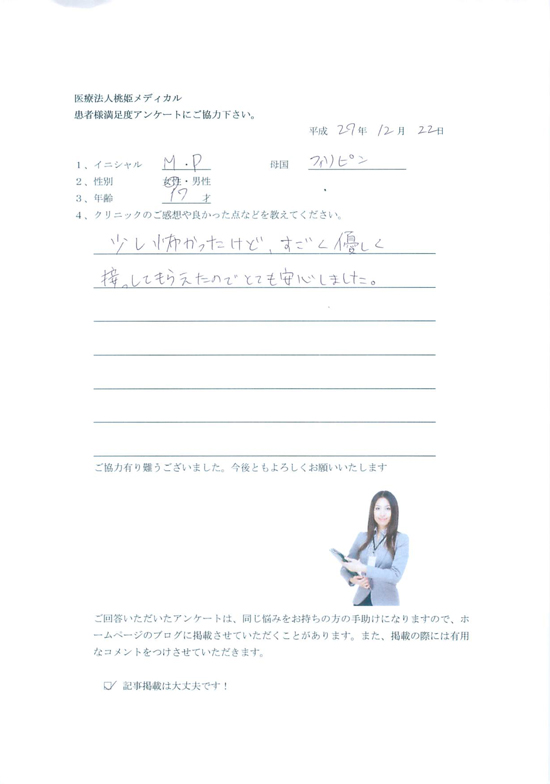 医療法人桃姫メディカル
患者様満足度アンケートにご協力下さい。
平成 27年 12月 22日
1、イニシャル M・P 母国 フィリピン
2、性別 女性・男性
3、年齢 17 才
4、クリニックのご感想や良かった点などを教えてください。
少し怖かったけど、すごく優しく
接っしてもらえたのでとても安心しました。
ご協力有り難うございました。今後ともよろしくお願いいたします
ご回答いただいたアンケートは、同じ悩みをお持ちの方の手助けになりますので、ホ
ームページのブログに掲載させていただくことがあります。また、掲載の際には有用
なコメントをつけさせていただきます。
記事掲載は大丈夫です！